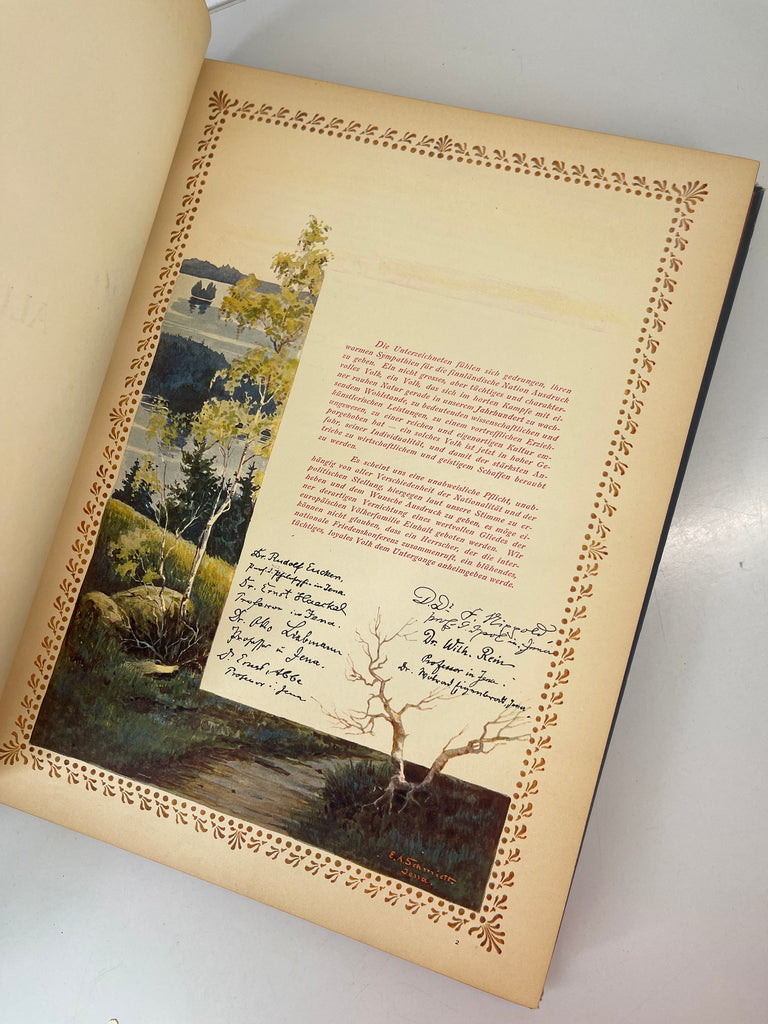 Die Unterzeichneten fühlen sich gedrungen, ihren
warmen Sympathien für die finnländische Nation Ausdruck
zu geben. Ein nicht grosses, aber tüchtiges und charakter-
volles Volk, ein Volk, das sich im harten Kampfe mit ei-
ner rauhen Natur gerade in unserem Jahrhundert zu wach-
sendem Wohlstande, zu bedeutenden wissenschaftlichen und
künstlerischen Leistungen, zu einem vortrefflichen Erzieh-
ungswesen, zu einer reichen und eigenartigen Kultur em-
porgehoben hat — ein solches Volk ist jetzt in hoher Ge-
fahr, seiner Individualität und damit der stärksten An-
triebe zu wirtschaftlichem und geistigem Schaffen beraubt
zu werden.
Es scheint uns eine unabweisliche Pflicht, unab-
hängig von aller Verschiedenheit der Nationalität und der
politischen Stellung, hiergegen laut unsere Stimme zu er-
heben und dem Wunsche Ausdruck zu geben, es möge ei-
ner derartigen Vernichtung eines wertvollen Gliedes der
europäischen Völkerfamilie Einhalt geboten werden. Wir
können nicht glauben, dass ein Herrscher, der die inter-
nationale Friedenskonferenz zusammenruft, ein blühendes,
tüchtiges, loyales Volk dem Untergange anheimgeben werde.
Dr. Rudolf Eucken,
Prof. d. Philosophie in Jena.
Dr. Ernst Haeckel
Professor in Jena.
Dr. Otto Liebmann
Professor in Jena.
Dr Ernst Abbe
Professor i. Jena
F. Nippold
Prof. in Jena
Dr. Wilh. Rein
Professor in Jena.
Dr. Jena.
E.A. Schmidt.
Jena.
2